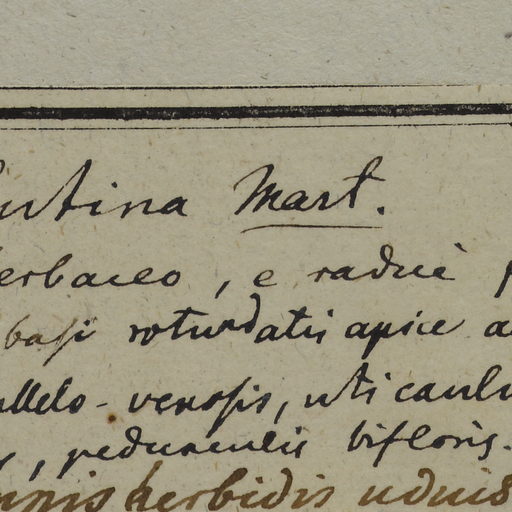 utina Mart.
erbaceo, e radice
basi rotundatis apice
allelo-venosis, uti caul
, pedunculis bifloris.
nnis herbidis uduis